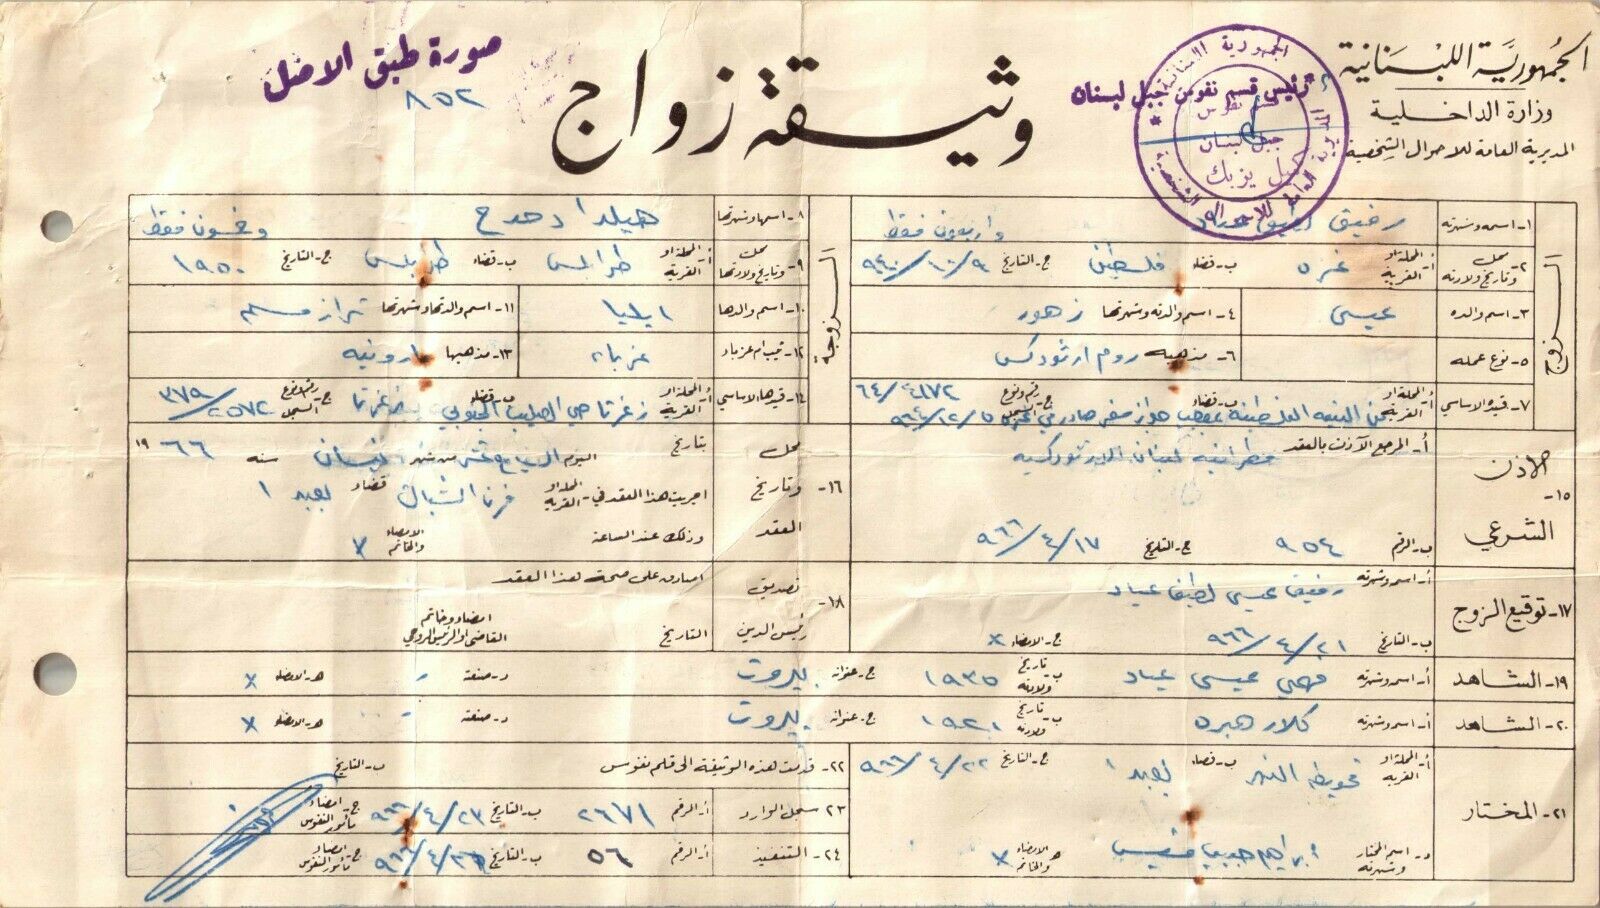 الجمهورية اللبنانية
وزارة الداخلية
المديرية العامة للاحوال الشخصية
الجمهورية اللبنانية
رئيس قسم نفوس جبل لبنان
جبل لبنان
يزبك
وثيقة زواج
صورة طبق الاصل
٨٥٢
الزوج
١- اسمه وشهرته رفيق عياد
٢- محل وتاريخ ولادته أ- المحلة او القرية غزه ب- قضاء فلسطين ج- التاريخ ٩٤٠/١٠/٩ واربعون فقط
٣- اسم والده عيسى ٤- اسم والدته وشهرتها زهور
٥- نوع عمله ٦- مذهبه روم ارثودكس
٧- قيده الاساسي أ- المحلة او القرية ب- قضاء ج- رقم ونوع السجل ٦٤/٤١٧٢
من التبعه الفلسطينة بموجب جواز سفر صادر من غزه ٩٦٤/١٢/٥
الزوجة
٨- اسمها وشهرتها هيلدا دحدح
٩- محل وتاريخ ولادتها أ- المحلة او القرية طرابلس ب- قضاء طرابلس ج- التاريخ ١٩٥٠ وخمسون فقط
١٠- اسم والدها ايليا ١١- اسم والدتها وشهرتها تراز مسلم
١٢- ثيب ام عزباء عزباء ١٣- مذهبها مارونيه
١٤- قيدها الاساسي أ- المحلة او القرية زغرتا حي الصليب الجنوبي ب- قضاء زغرتا ج- رقم ونوع السجل ٣٧٩/٢٥٧٢
١٥- الاذن الشرعي
أ- المرجع الآذن بالعقد مطرانيه لبنان الارثودكسيه
ب- الرقم ٩٥٤ ج- التاريخ ٩٦٦/٤/١٧
١٦- محل وتاريخ العقد
بتاريخ اليوم السابع عشر من شهر نيسان سنة ١٩٦٦
اجريت هذا العقد في أ- المحلة او القرية فرن الشباك قضاء بعبدا
وذلك عند الساعة الامضاء والخاتم x
١٧- توقيع الزوج
أ- اسمه وشهرته رفيق عيسى لطيف عياد
ب- التاريخ ٩٦٦/٤/٢١ ج- الامضاء x
١٨- تصديق رئيس الدين
اصادق على صحة هذا العقد
التاريخ امضاء وخاتم القاضي او الرئيس الروحي
١٩- الشاهد أ- اسمه وشهرته فهمي عيسى عياد ب- تاريخ ولادته ١٩٣٥ ج- عنوانه بيروت د- صنعته - هـ- الامضاء x
٢٠- الشاهد أ- اسمه وشهرته ب- تاريخ ولادته ١٩٢١ ج- عنوانه بيروت د- صنعته - هـ- الامضاء x
٢١- المختار
أ- المحلة او القرية تحويطة النهر ب- قضاء بعبدا ج- التاريخ ٩٦٦/٤/٢٢
د- اسم المختار وشهرته ابراهيم حبيب هـ- الامضاء والخاتم x
٢٢- قدمت هذه الوثيقة الى قلم نفوس ب- التاريخ
٢٣- سجل الوارد أ- الرقم ٢٦٧١ ب- التاريخ ٩٦٦/٤/٢٣ ج- امضاء مأمور النفوس
٢٤- التنفيذ أ- الرقم ٥٦ ب- التاريخ ج- امضاء مأمور النفوس